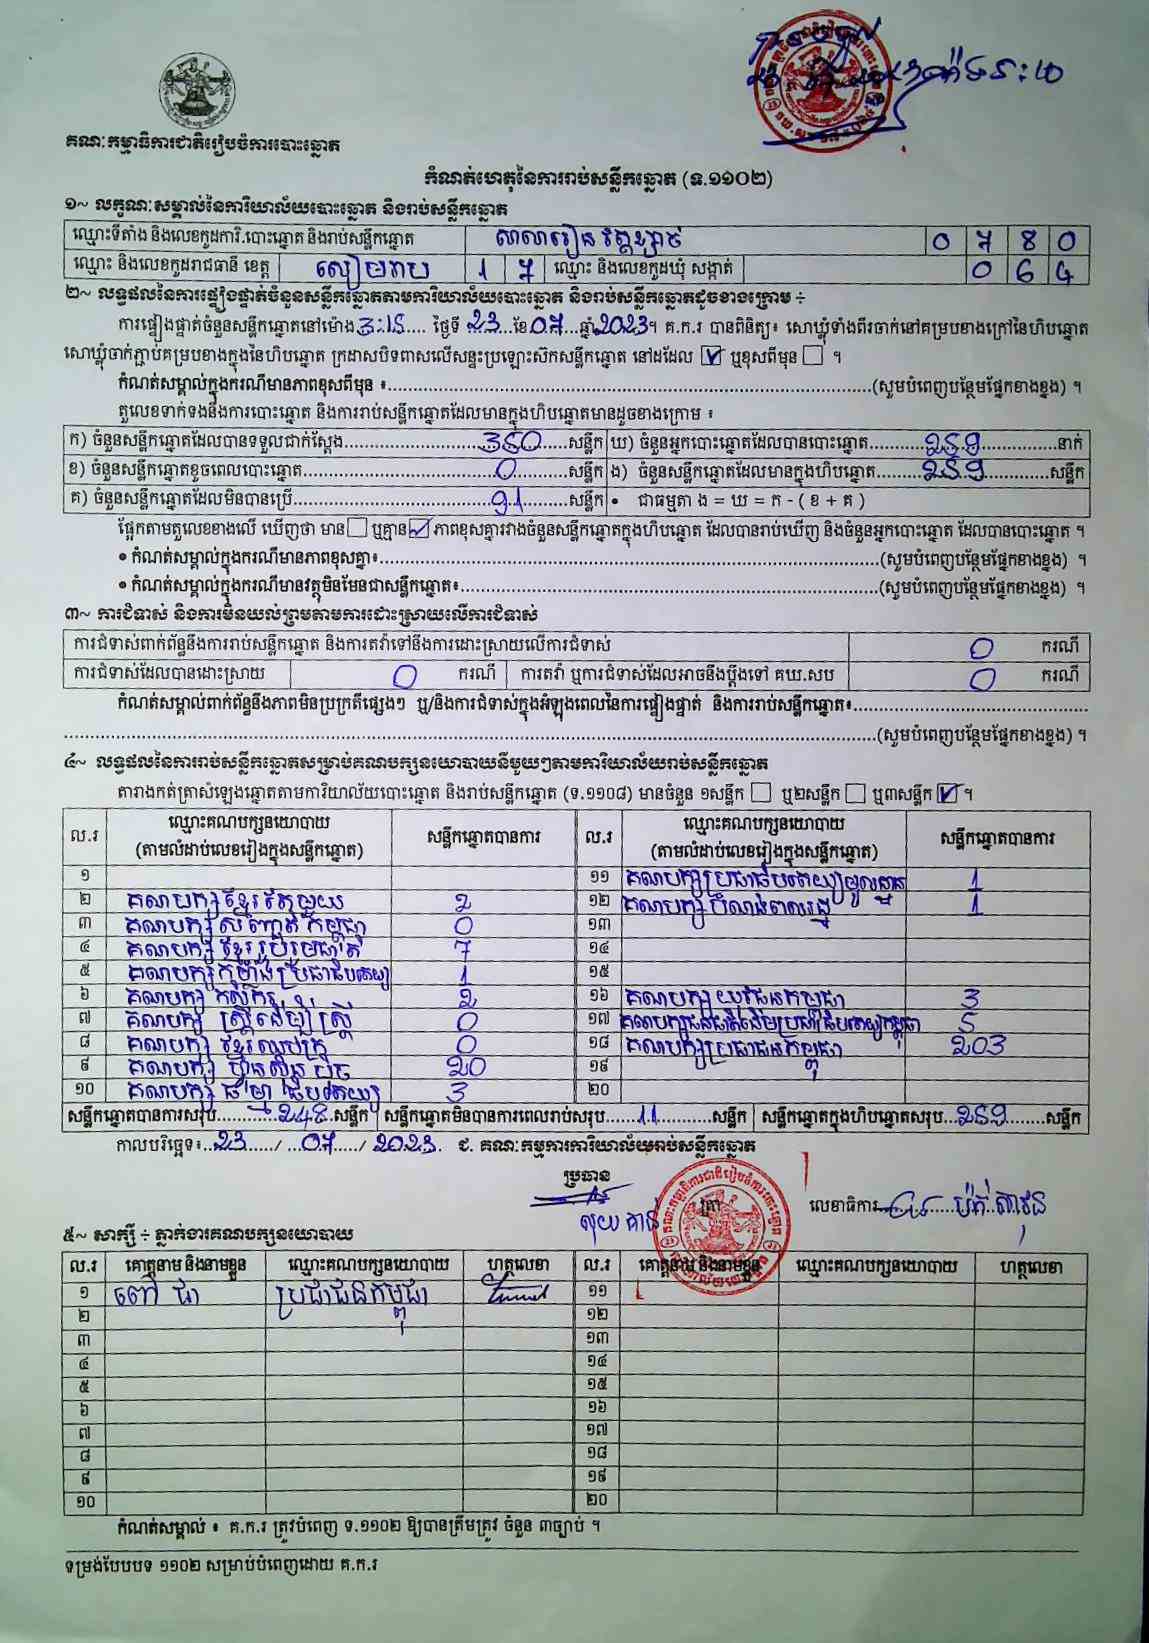 គណៈកម្មាធិការជាតិរៀបចំការបោះឆ្នោត
កំណត់ហេតុនៃការរាប់សន្លឹកឆ្នោត (ទ.១១០២)
១~ លក្ខណៈសម្គាល់នៃការិយាល័យបោះឆ្នោត និងរាប់សន្លឹកឆ្នោត
ឈ្មោះទីតាំង និងលេខកូដការិ.បោះឆ្នោត និងរាប់សន្លឹកឆ្នោត សាលារៀន វត្តខ្សាច់ 0 7 8 0
ឈ្មោះ និងលេខកូដរាជធានី ខេត្ត សៀមរាប 1 7 ឈ្មោះ និងលេខកូដឃុំ សង្កាត់ 0 6 4
២~ លទ្ធផលនៃការផ្ទៀងផ្ទាត់ចំនួនសន្លឹកឆ្នោតតាមការិយាល័យបោះឆ្នោត និងរាប់សន្លឹកឆ្នោតដូចខាងក្រោម ÷
ការផ្ទៀងផ្ទាត់ចំនួនសន្លឹកឆ្នោតនៅម៉ោង 3:15 ថ្ងៃទី 23 ខែ 07 ឆ្នាំ 2023 ។ គ.ក.រ បានពិនិត្យ៖ សោឃ្លុំទាំងពីរចាក់នៅគម្របខាងក្រៅនៃហិបឆ្នោត
សោឃ្លុំចាក់ភ្ជាប់គម្របខាងក្នុងនៃហិបឆ្នោត ក្រដាសបិទពាសលើសន្ទះប្រឡោះស៊កសន្លឹកឆ្នោត នៅដដែល ☑ ឬខុសពីមុន ☐ ។
កំណត់សម្គាល់ក្នុងករណីមានភាពខុសពីមុន ៖ (សូមបំពេញបន្ថែមផ្នែកខាងខ្នង) ។
តួលេខទាក់ទងនឹងការបោះឆ្នោត និងការរាប់សន្លឹកឆ្នោតដែលមានក្នុងហិបឆ្នោតមានដូចខាងក្រោម ៖
ក) ចំនួនសន្លឹកឆ្នោតដែលបានទទួលជាក់ស្តែង 350 សន្លឹក ឃ) ចំនួនអ្នកបោះឆ្នោតដែលបានបោះឆ្នោត 259 នាក់
ខ) ចំនួនសន្លឹកឆ្នោតខូចពេលបោះឆ្នោត 0 សន្លឹក ង) ចំនួនសន្លឹកឆ្នោតដែលមានក្នុងហិបឆ្នោត 259 សន្លឹក
គ) ចំនួនសន្លឹកឆ្នោតដែលមិនបានប្រើ 91 សន្លឹក • ជាធម្មតា ង = ឃ = ក - ( ខ + គ )
ផ្អែកតាមតួលេខខាងលើ ឃើញថា មាន ☐ ឬគ្មាន ☑ ភាពខុសគ្នារវាងចំនួនសន្លឹកឆ្នោតក្នុងហិបឆ្នោត ដែលបានរាប់ឃើញ និងចំនួនអ្នកបោះឆ្នោត ដែលបានបោះឆ្នោត ។
• កំណត់សម្គាល់ក្នុងករណីមានភាពខុសគ្នា៖ (សូមបំពេញបន្ថែមផ្នែកខាងខ្នង) ។
• កំណត់សម្គាល់ក្នុងករណីមានវត្ថុមិនមែនជាសន្លឹកឆ្នោត៖ (សូមបំពេញបន្ថែមផ្នែកខាងខ្នង) ។
៣~ ការជំទាស់ និងការមិនយល់ព្រមតាមការដោះស្រាយលើការជំទាស់
ការជំទាស់ពាក់ព័ន្ធនឹងការរាប់សន្លឹកឆ្នោត និងការតវ៉ាទៅនឹងការដោះស្រាយលើការជំទាស់ 0 ករណី
ការជំទាស់ដែលបានដោះស្រាយ 0 ករណី ការតវ៉ា ឬការជំទាស់ដែលអាចនឹងប្តឹងទៅ គឃ.សប 0 ករណី
កំណត់សម្គាល់ពាក់ព័ន្ធនឹងភាពមិនប្រក្រតីផ្សេងៗ ឬ/និងការជំទាស់ក្នុងអំឡុងពេលនៃការផ្ទៀងផ្ទាត់ និងការរាប់សន្លឹកឆ្នោត៖
(សូមបំពេញបន្ថែមផ្នែកខាងខ្នង) ។
៤~ លទ្ធផលនៃការរាប់សន្លឹកឆ្នោតសម្រាប់គណបក្សនយោបាយនីមួយៗតាមការិយាល័យរាប់សន្លឹកឆ្នោត
តារាងកត់ត្រាសំឡេងឆ្នោតតាមការិយាល័យបោះឆ្នោត និងរាប់សន្លឹកឆ្នោត (ទ.១១០៨) មានចំនួន ១សន្លឹក ☐ ឬ២សន្លឹក ☐ ឬ៣សន្លឹក ☑ ។
ល.រ ឈ្មោះគណបក្សនយោបាយ (តាមលំដាប់លេខរៀងក្នុងសន្លឹកឆ្នោត) សន្លឹកឆ្នោតបានការ ល.រ ឈ្មោះគណបក្សនយោបាយ (តាមលំដាប់លេខរៀងក្នុងសន្លឹកឆ្នោត) សន្លឹកឆ្នោតបានការ
១ ១១ គណបក្សប្រជាធិបតេយ្យមូលដ្ឋាន 1
២ គណបក្ស ខ្មែរតែមួយ 2 ១២ គណបក្ស បំណងពលរដ្ឋ 1
៣ គណបក្ស សញ្ជាតិ កម្ពុជា 0 ១៣
៤ គណបក្ស ខ្មែររួបរួមជាតិ 7 ១៤
៥ គណបក្ស កម្លាំងប្រជាធិបតេយ្យ 1 ១៥
៦ គណបក្ស កសិករ 2 ១៦ គណបក្ស យុវជនកម្ពុជា 3
៧ គណបក្ស ស្ត្រីដើម្បីស្ត្រី 0 ១៧ គណបក្សជនជាតិដើមប្រជាធិបតេយ្យកម្ពុជា 5
៨ គណបក្ស ខ្មែរឈប់ក្រ 0 ១៨ គណបក្សប្រជាជនកម្ពុជា 203
៩ គណបក្ស ហ៊្វុនស៊ិនប៉ិច 20 ១៩
១០ គណបក្ស ធម្មាធិបតេយ្យ 3 ២០
សន្លឹកឆ្នោតបានការសរុប 248 សន្លឹក សន្លឹកឆ្នោតមិនបានការពេលរាប់សរុប 11 សន្លឹក សន្លឹកឆ្នោតក្នុងហិបឆ្នោតសរុប 259 សន្លឹក
កាលបរិច្ឆេទ៖ 23 / 07 / 2023. ជ. គណៈកម្មការការិយាល័យរាប់សន្លឹកឆ្នោត
ប្រធាន ត្រា លេខាធិការ
៥~ សាក្សី ÷ ភ្នាក់ងារគណបក្សនយោបាយ
ល.រ គោត្តនាម និងនាមខ្លួន ឈ្មោះគណបក្សនយោបាយ ហត្ថលេខា ល.រ គោត្តនាម និងនាមខ្លួន ឈ្មោះគណបក្សនយោបាយ ហត្ថលេខា
១ ពៅ ជា ប្រជាជនកម្ពុជា ១១
២ ១២
៣ ១៣
៤ ១៤
៥ ១៥
៦ ១៦
៧ ១៧
៨ ១៨
៩ ១៩
១០ ២០
កំណត់សម្គាល់ ៖ គ.ក.រ ត្រូវបំពេញ ទ.១១០២ ឱ្យបានត្រឹមត្រូវ ចំនួន ៣ច្បាប់ ។
ទម្រង់បែបបទ ១១០២ សម្រាប់បំពេញដោយ គ.ក.រ